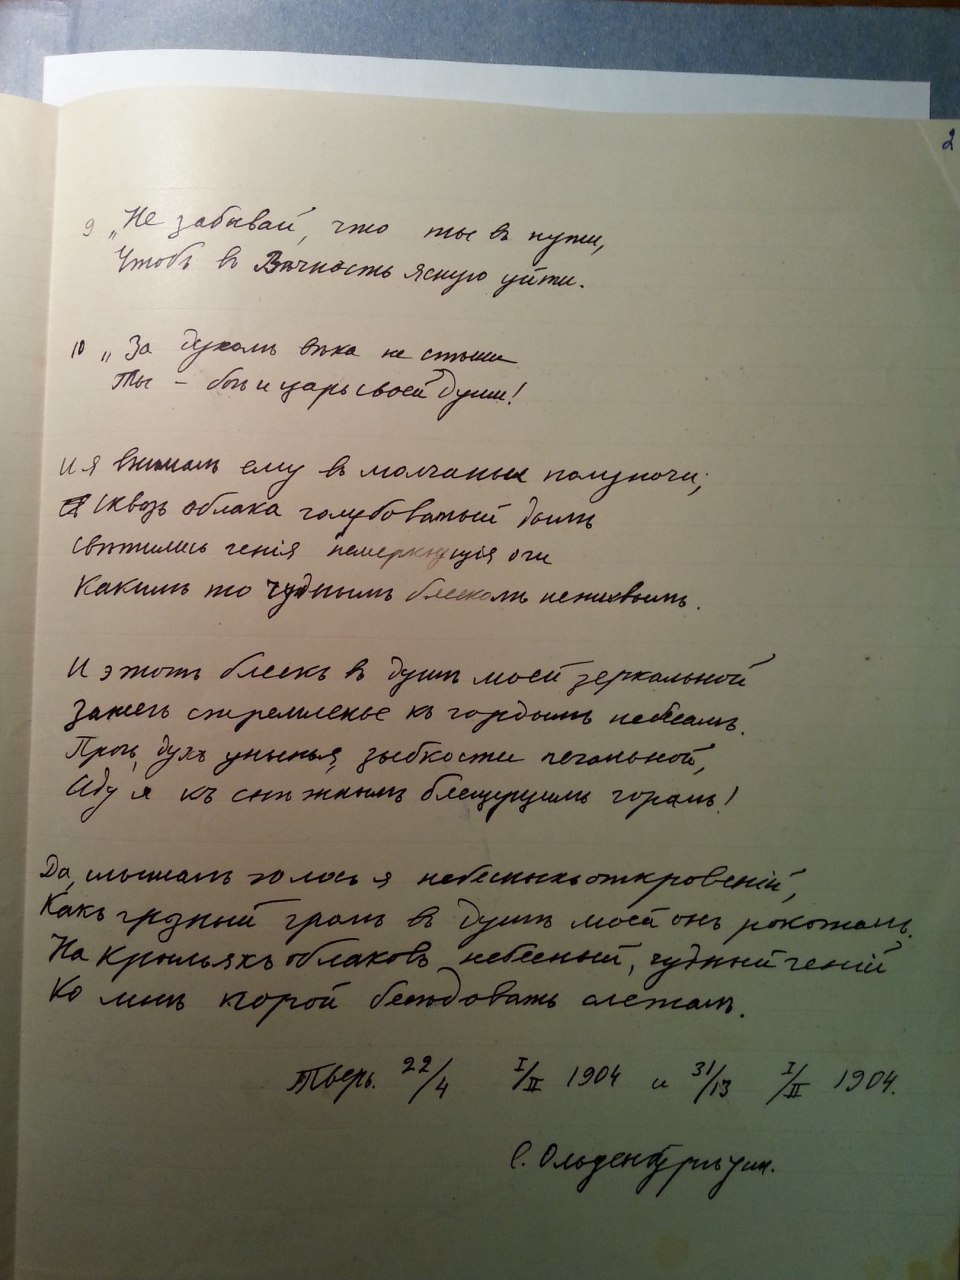 2
9 „Не забывай, что ты въ пути,
Чтобъ в Вѣчность ясную уйти.
10 „За духомъ вѣка не спѣши
Ты – богъ и царь своей души!
И я внималъ ему в молчаньи полуночи;
Сквозь облака голубоватый дымъ
Свѣтились генія немеркнущія очи
Какимъ то чуднымъ блескомъ неживымъ.
И этотъ блескъ в душѣ моей зеркальной
Зажегъ стремленье къ гордымъ небесамъ.
Прочь, духъ унынья, зыбкости печальной,
Иду я къ снѣжнымъ блещущимъ горамъ!
Да, слышалъ голосъ я небесныхъ откровеній,
Какъ грозный громъ в душѣ моей онъ рокоталъ.
На крыльяхъ облаковъ небесный, чудный геній
Ко мнѣ порой бесѣдовать слеталъ.
Тверь. 22/4 I/II 1904 и 31/13 I/II 1904.
С. Ольденбург